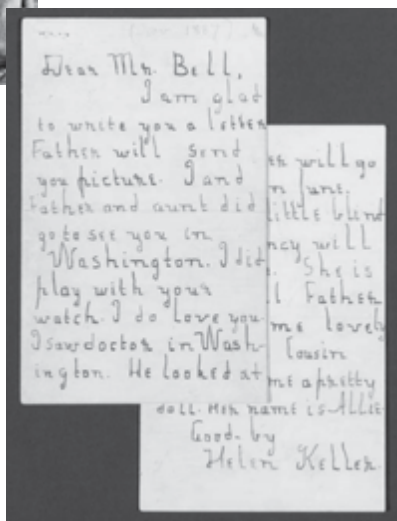 Dear Mr. Bell,
I am glad
to write you a letter
Father will send
you picture. I and
Father and aunt did
go to see you in
Washington. I did
play with your
watch. I do love you.
I saw doctor in Wash-
ington. He looked at
will go
June.
little blind
will
She is
Father
me lovely
Cousin
me a pretty
doll. Her name is Allie
Good-by
Helen Keller.